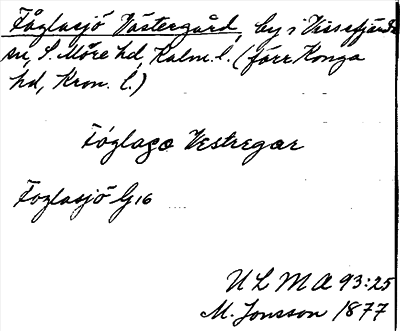 Fåglasjö Västergård, by i Vissefjärda
sn, S. Möre hd, Kalm. l. (förr Konga
hd, Kron. l.)
Föglaså Vestregar
Foglasjö G16
ULMA 93:25
M. Jonsson 1877